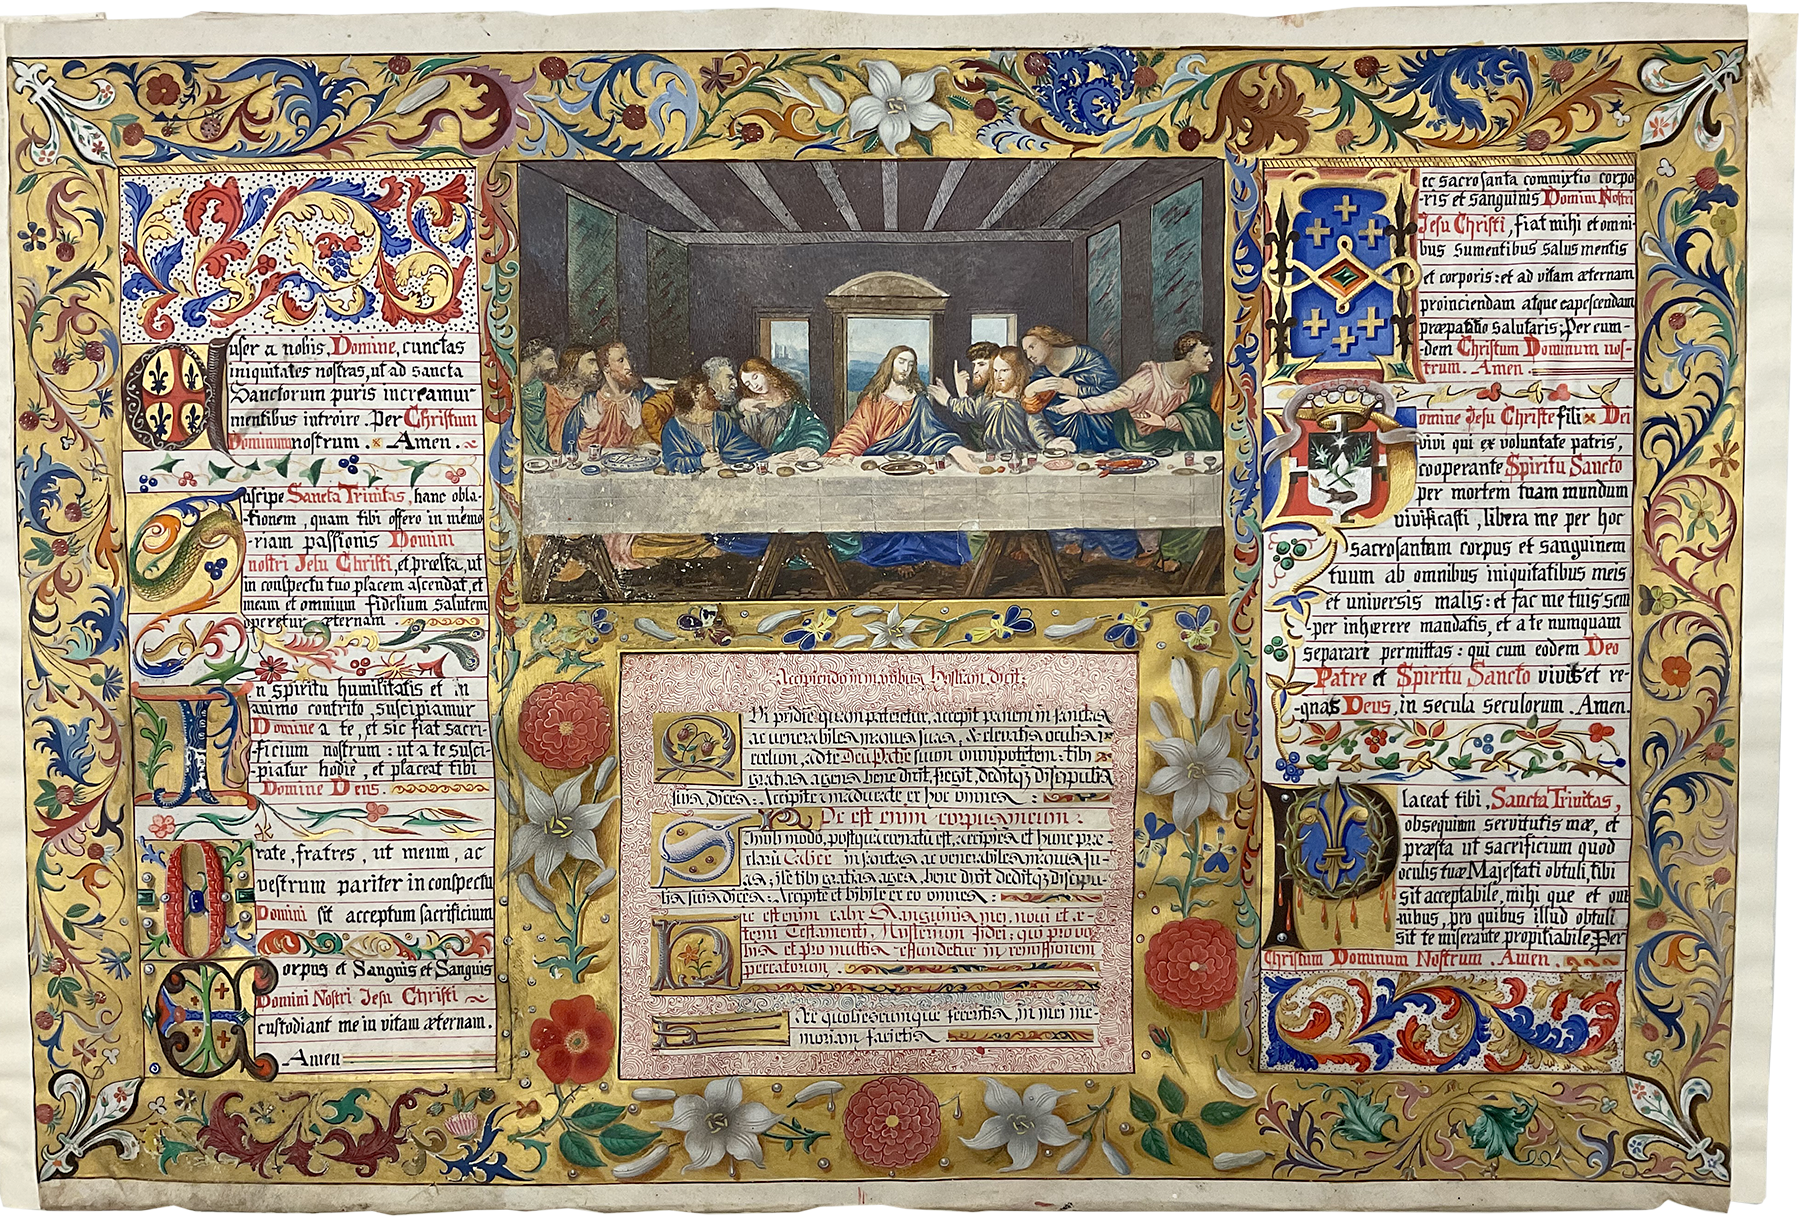 Aufer a nobis, Domine, cunctas
iniquitates nostras, ut ad sancta
Sanctorum puris increamur
mentibus introire. Per Christum
Dominum nostrum. Amen.
Suscipe Sancta Trinitas, hanc obla-
-tionem, quam tibi offero in memo
-riam passionis Domini
nostri Jesu Christi, et præsta, ut
in conspectu tuo placem ascendat, et
meam et omnium fidelium salutem
operetur æternam
In spiritu humilitatis et in
animo contrito, suscipiamur
Domine a te, et sic fiat sacri-
-ficium nostrum : ut a te susci-
-piatur hodiè, et placeat tibi
Domine Deus.
Orate, fratres, ut meum, ac
vestrum pariter in conspectu
Domini sit acceptum sacrificium
Corpus et Sanguis et Sanguis
Domini Nostri Jesu Christi
custodiant me in vitam æternam.
Amen
Accipiendo in manibus Hostiam dicit:
Qui pridie quam pateretur, accepit panem in sanctas
ac venerabiles manus suas, & elevatis oculis i
cælum, ad te Deu Patre suum omnipotetem : tibi
gratias agens bene dixit, fregit, deditq3 discipulis
suis, dices : Accipite & māducate ex hoc omnes :
Hoc est enim corpus meum :
Simili modo, postquā cenatū est, accipiēs et hunc præ-
clarū Calice in sanctas ac venerabiles manus su-
as ; ite tibi gratias ages, bene dixit deditq3 discipu-
lis suis dices : Accipite et bibite ex eo omnes :
Hic est enim calix Sanguinis mei, noui et æ-
terni Testamenti, Mysterium fidei; qui pro vo-
bis et pro multis effundetur in remissionem
peccatorum.
Hæc quotiescumque feceritis, in mei me-
moriam facietis
Hec sacrosanta commixtio corpo
-ris et sanguinis Domini Nostri
Jesu Christi, fiat mihi et omni-
bus sumentibus salus mentis
et corporis : et ad vitam æternam
proinciendam atque capescendam
præpatatio salutaris ; Per eum-
-dem Christum Dominum nos-
-trum. Amen.
Domine Jesu Christe fili Dei
vivi qui ex voluntate patris,
cooperante Spiritu Sancto
per mortem tuam mundum
vivificasti, libera me per hoc
sacrosantum corpus et sanguinem
tuum ab omnibus iniquitatibus meis
et universis malis : et fac me tuis sem
-per inhærere mandatis, et a te numquam
separari permittas : qui cum eodem Deo
Patre et Spiritu Sancto vivis et re-
-gnas Deus, in secula seculorum. Amen.
Placeat tibi, Sancta Trinitas,
obsequium servitutis mæ, et
præsta ut sacrificium quod
oculis tuæ Majestati obtuli, tibi
sit acceptabile, mihi que et om
nibus, pro quibus illud obtuli
sit te miserante propitiabile; Per
Christum Dominum Nostrum. Amen.